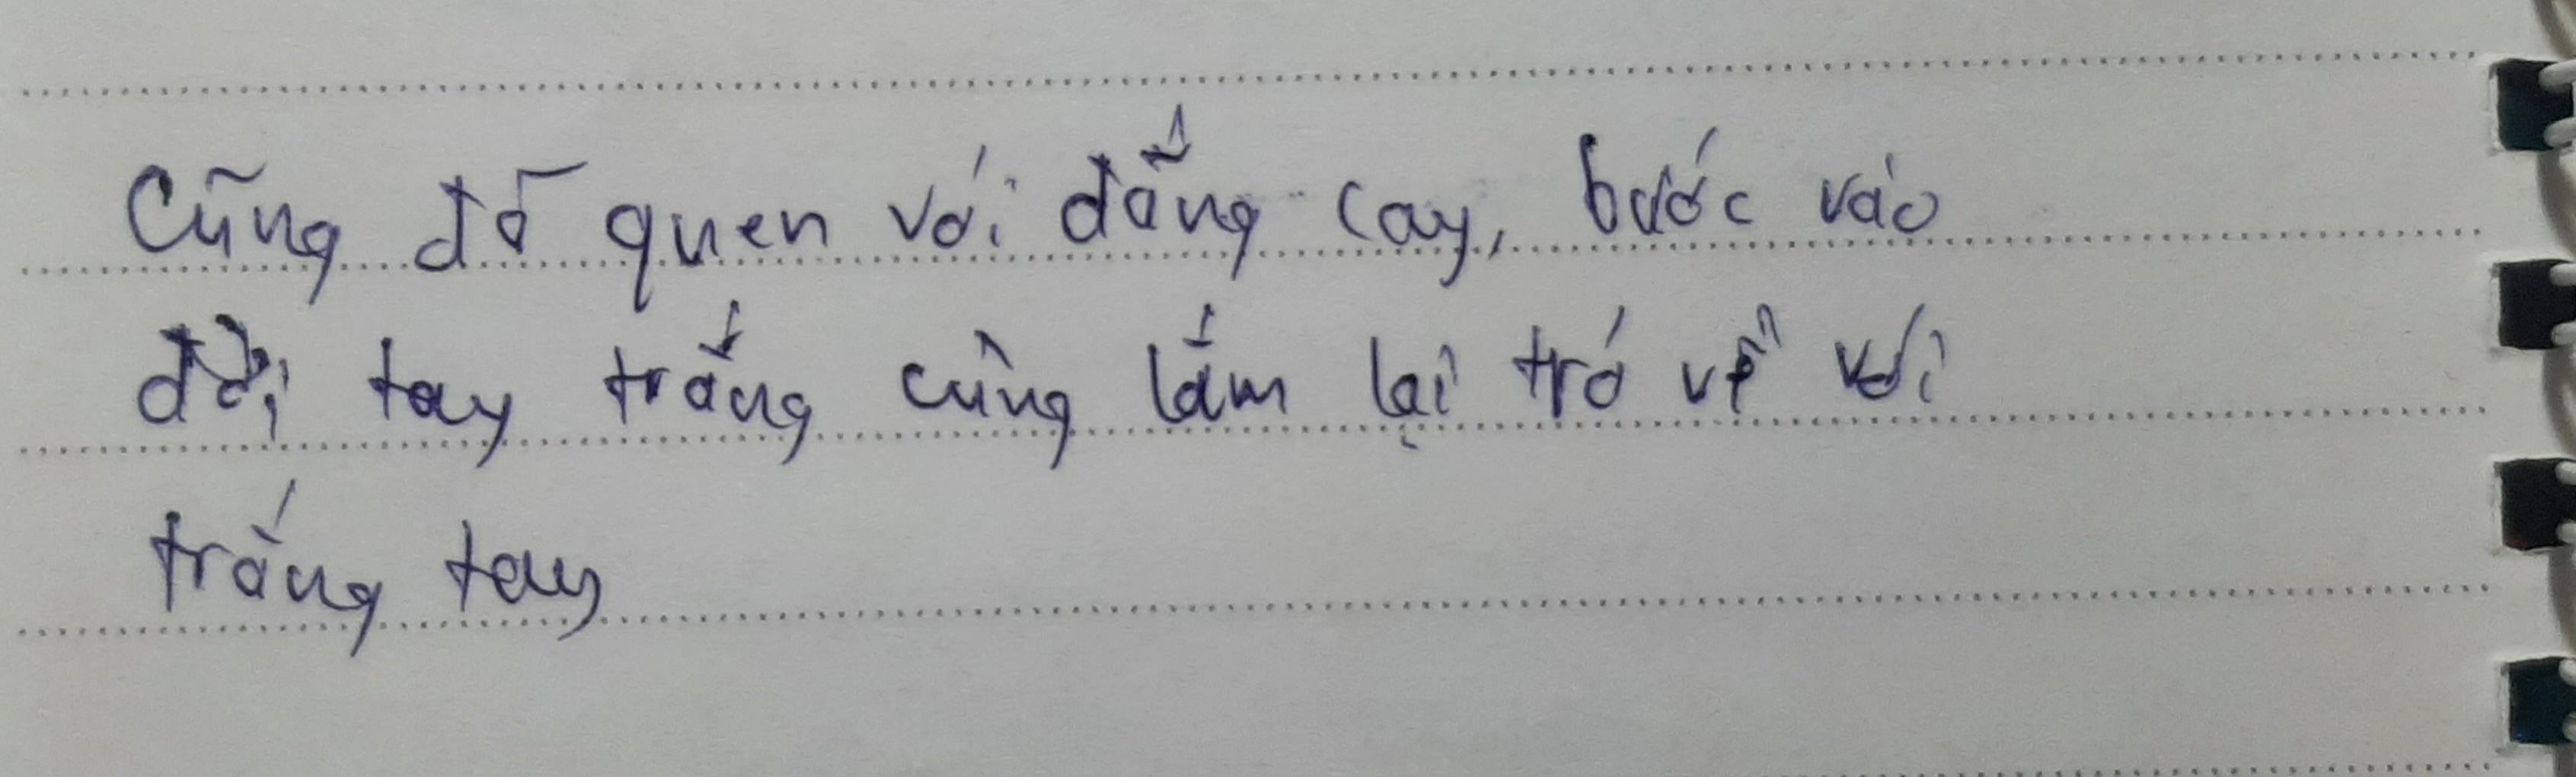 Cũng đã quen với đắng cay, bước vào
đời tay trắng cùng lắm lại trở về với
trắng tay